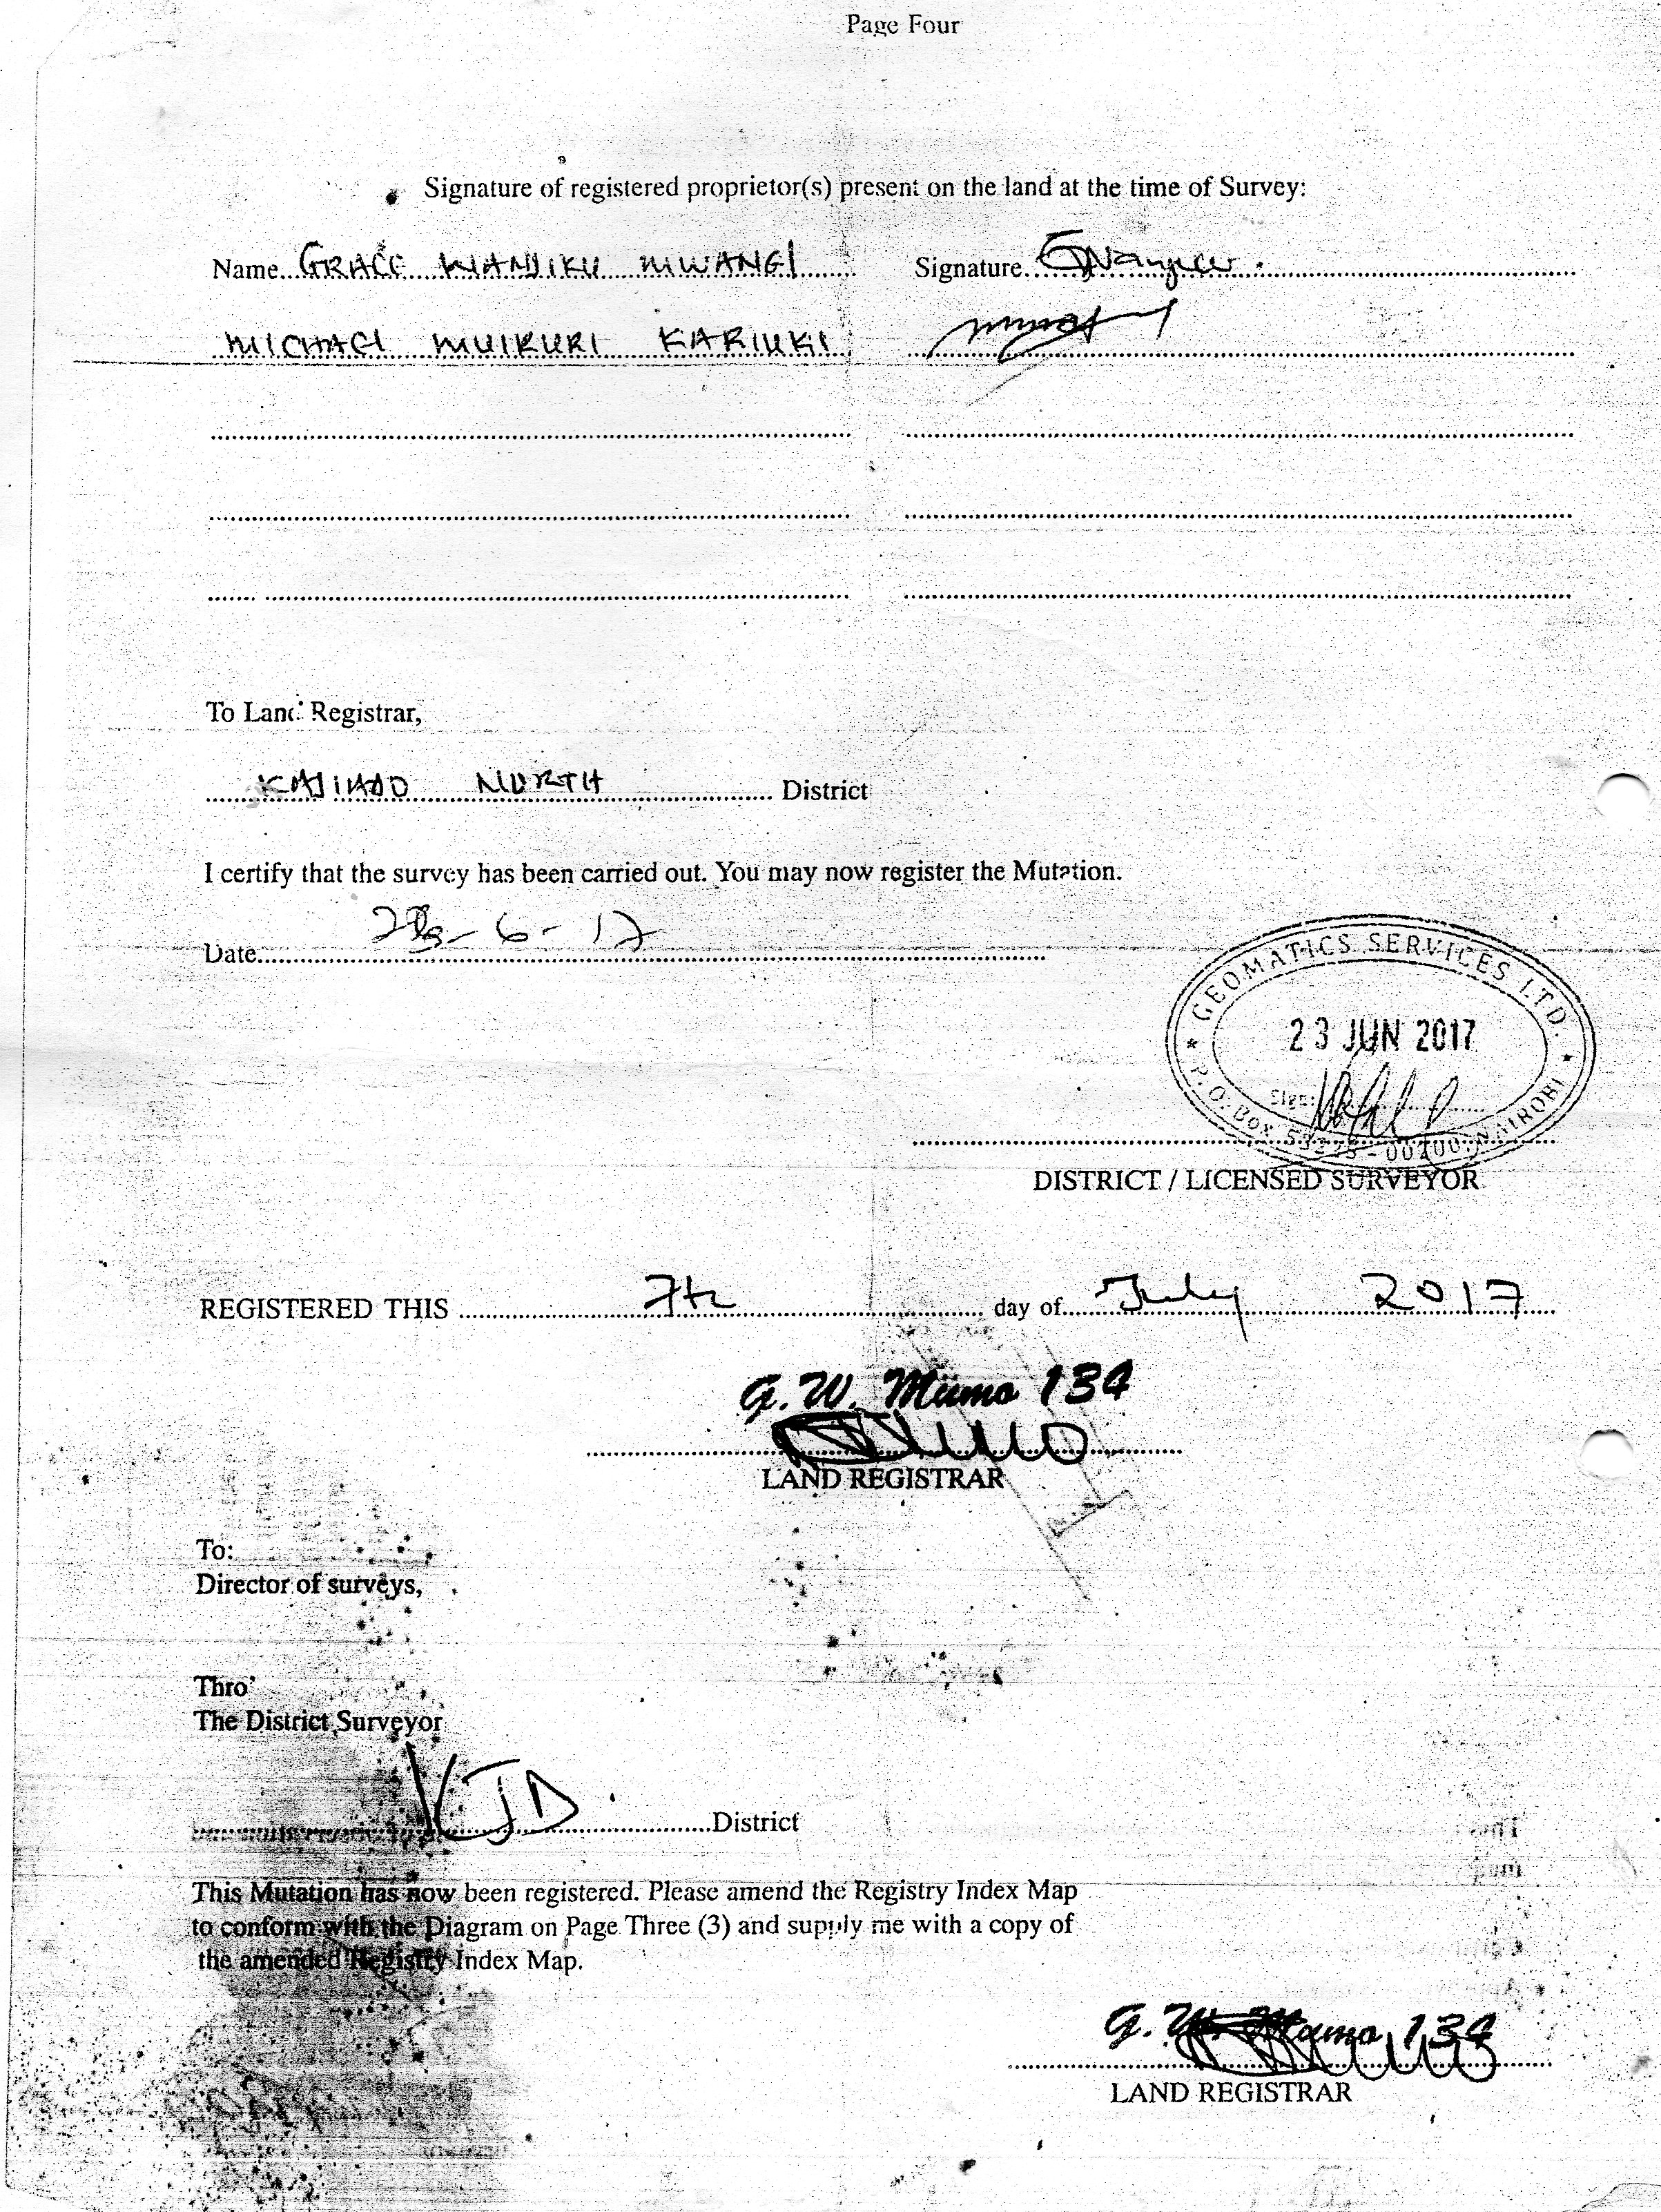 Page Four
Signature of registered proprietor(s) present on the land at the time of Survey:
Name GRACE WANJIKU MWANGI Signature
MICHAEL MUIRURI KARIUKI
To Land Registrar,
KAJIADO NORTH District
I certify that the survey has been carried out. You may now register the Mutation.
Date 23-6-17
GEOMATICS SERVICES LTD.
23 JUN 2017
Sign:
P. O. Box - 00200, NAIROBI
DISTRICT / LICENSED SURVEYOR
REGISTERED THIS 7th day of July 2017
G. W. Mumo 134
LAND REGISTRAR
To:
Director of surveys,
Thro'
The District Surveyor
KJD. District
This Mutation has now been registered. Please amend the Registry Index Map
to conform with the Diagram on Page Three (3) and supply me with a copy of
the amended Registry Index Map.
G. W. Mumo 134
LAND REGISTRAR